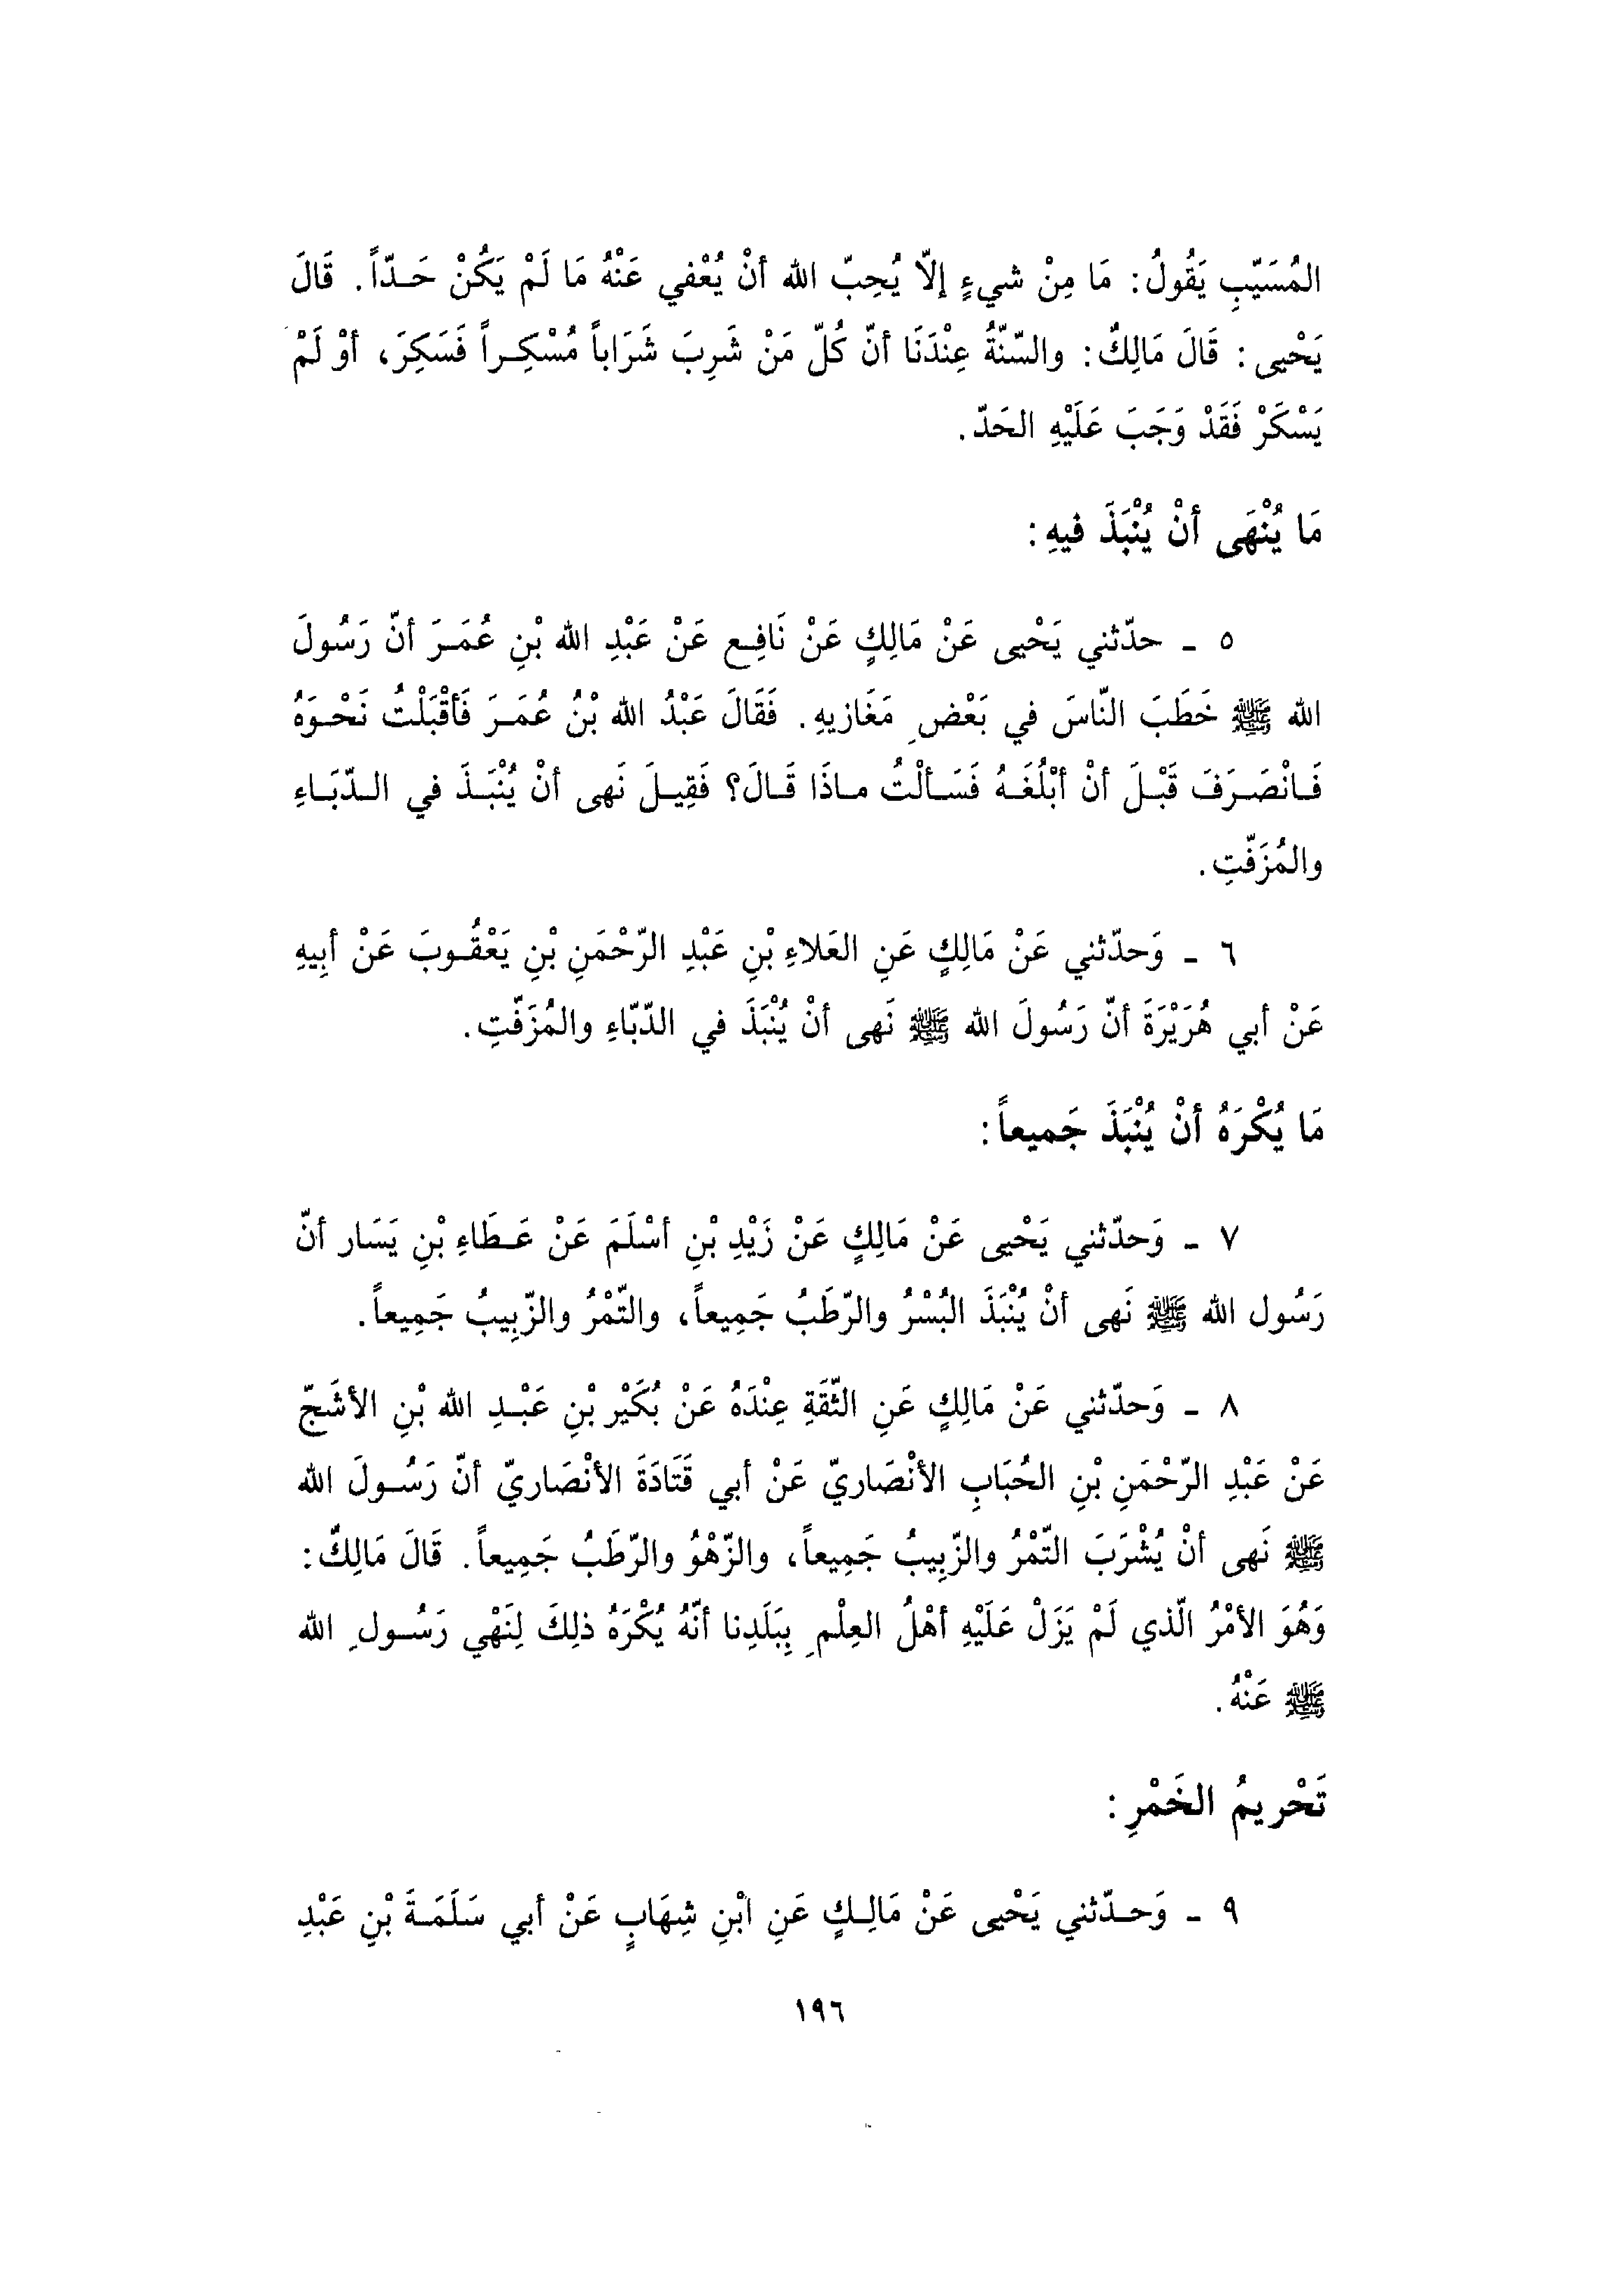 المُسَيّبِ يَقُولُ: مَا مِنْ شيءٍ إلاّ يُحِبّ الله أنْ يُعْفي عَنْهُ مَا لَمْ يَكُنْ حَـدّاً. قَالَ
يَحْيى: قَالَ مَالِكٌ: والسّنّةُ عِنْدَنَا أنّ كُلّ مَنْ شَرِبَ شَرَاباً مُسْكِـراً فَسَكِرَ، أوْ لَمْ
يَسْكَرْ فَقَدْ وَجَبَ عَلَيْهِ الحَدّ.
مَا يُنْهَى أنْ يُنْبَذَ فيهِ:
٥ - حدّثني يَحْيى عَنْ مَالِكٍ عَنْ نَافِـع عَنْ عَبْدِ الله بْنِ عُمَـرَ أنّ رَسُولَ
الله ﷺ خَطَبَ النّاسَ في بَعْضِ مَغَازيهِ. فَقَالَ عَبْدُ الله بْنُ عُمَـرَ فَأقْبَلْتُ نَحْـوَهُ
فَـانْصَـرَفَ قَبْـلَ أنْ أبْلُغَـهُ فَسَـألْتُ مـاذَا قَـالَ؟ فَقِيـلَ نَهى أنْ يُنْبَـذَ في الـدّبَـاءِ
والمُزَفّتِ.
٦ - وَحدّثني عَنْ مَالِكٍ عَنِ العَلاءِ بْنِ عَبْدِ الرّحْمَنِ بْنِ يَعْقُـوبَ عَنْ أبِيهِ
عَنْ أبي هُرَيْرَةَ أنّ رَسُولَ الله ﷺ نَهى أنْ يُنْبَذَ في الدّبّاءِ والمُزَفّتِ.
مَا يُكْرَهُ أنْ يُنْبَذَ جَميعاً:
٧ - وَحدّثني يَحْيى عَنْ مَالِكٍ عَنْ زَيْدِ بْنِ أسْلَمَ عَنْ عَـطَاءِ بْنِ يَسَار أنّ
رَسُول الله ﷺ نَهى أنْ يُنْبَذَ البُسْرُ والرّطَبُ جَمِيعاً، والتّمْرُ والزّبِيبُ جَمِيعاً.
٨ - وَحدّثني عَنْ مَالِكٍ عَنِ الثّقَةِ عِنْدَهُ عَنْ بُكَيْر بْنِ عَبْـدِ الله بْنِ الأشَجّ
عَنْ عَبْدِ الرّحْمَنِ بْنِ الحُبَابِ الأنْصَاريّ عَنْ أبي قَتَادَةَ الأنْصَاريّ أنّ رَسُـولَ الله
ﷺ نَهى أنْ يُشْرَبَ التّمْرُ والزّبِيبُ جَمِيعاً، والزّهْوُ والرّطَبُ جَمِيعاً. قَالَ مَالِكٌ:
وَهُوَ الأمْرُ الّذي لَمْ يَزَلْ عَلَيْهِ أهْلُ العِلْمِ بِبَلَدِنا أنّهُ يُكْرَهُ ذلِكَ لِنَهْي رَسُـولِ الله
ﷺ عَنْهُ.
تَحْريمُ الخَمْرِ:
٩ - وَحـدّثني يَحْيى عَنْ مَالِـكٍ عَنِ ابْنِ شِهَابٍ عَنْ أبي سَلَمَـةَ بْنِ عَبْدِ
١٩٦